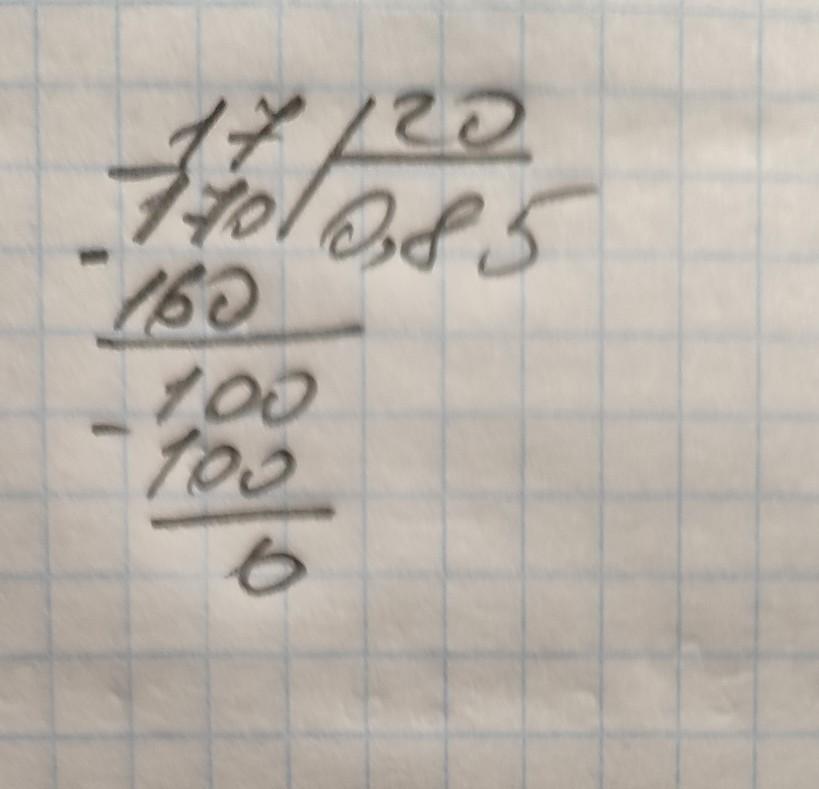 17 20
- 170 0,85
160
- 100
100
0